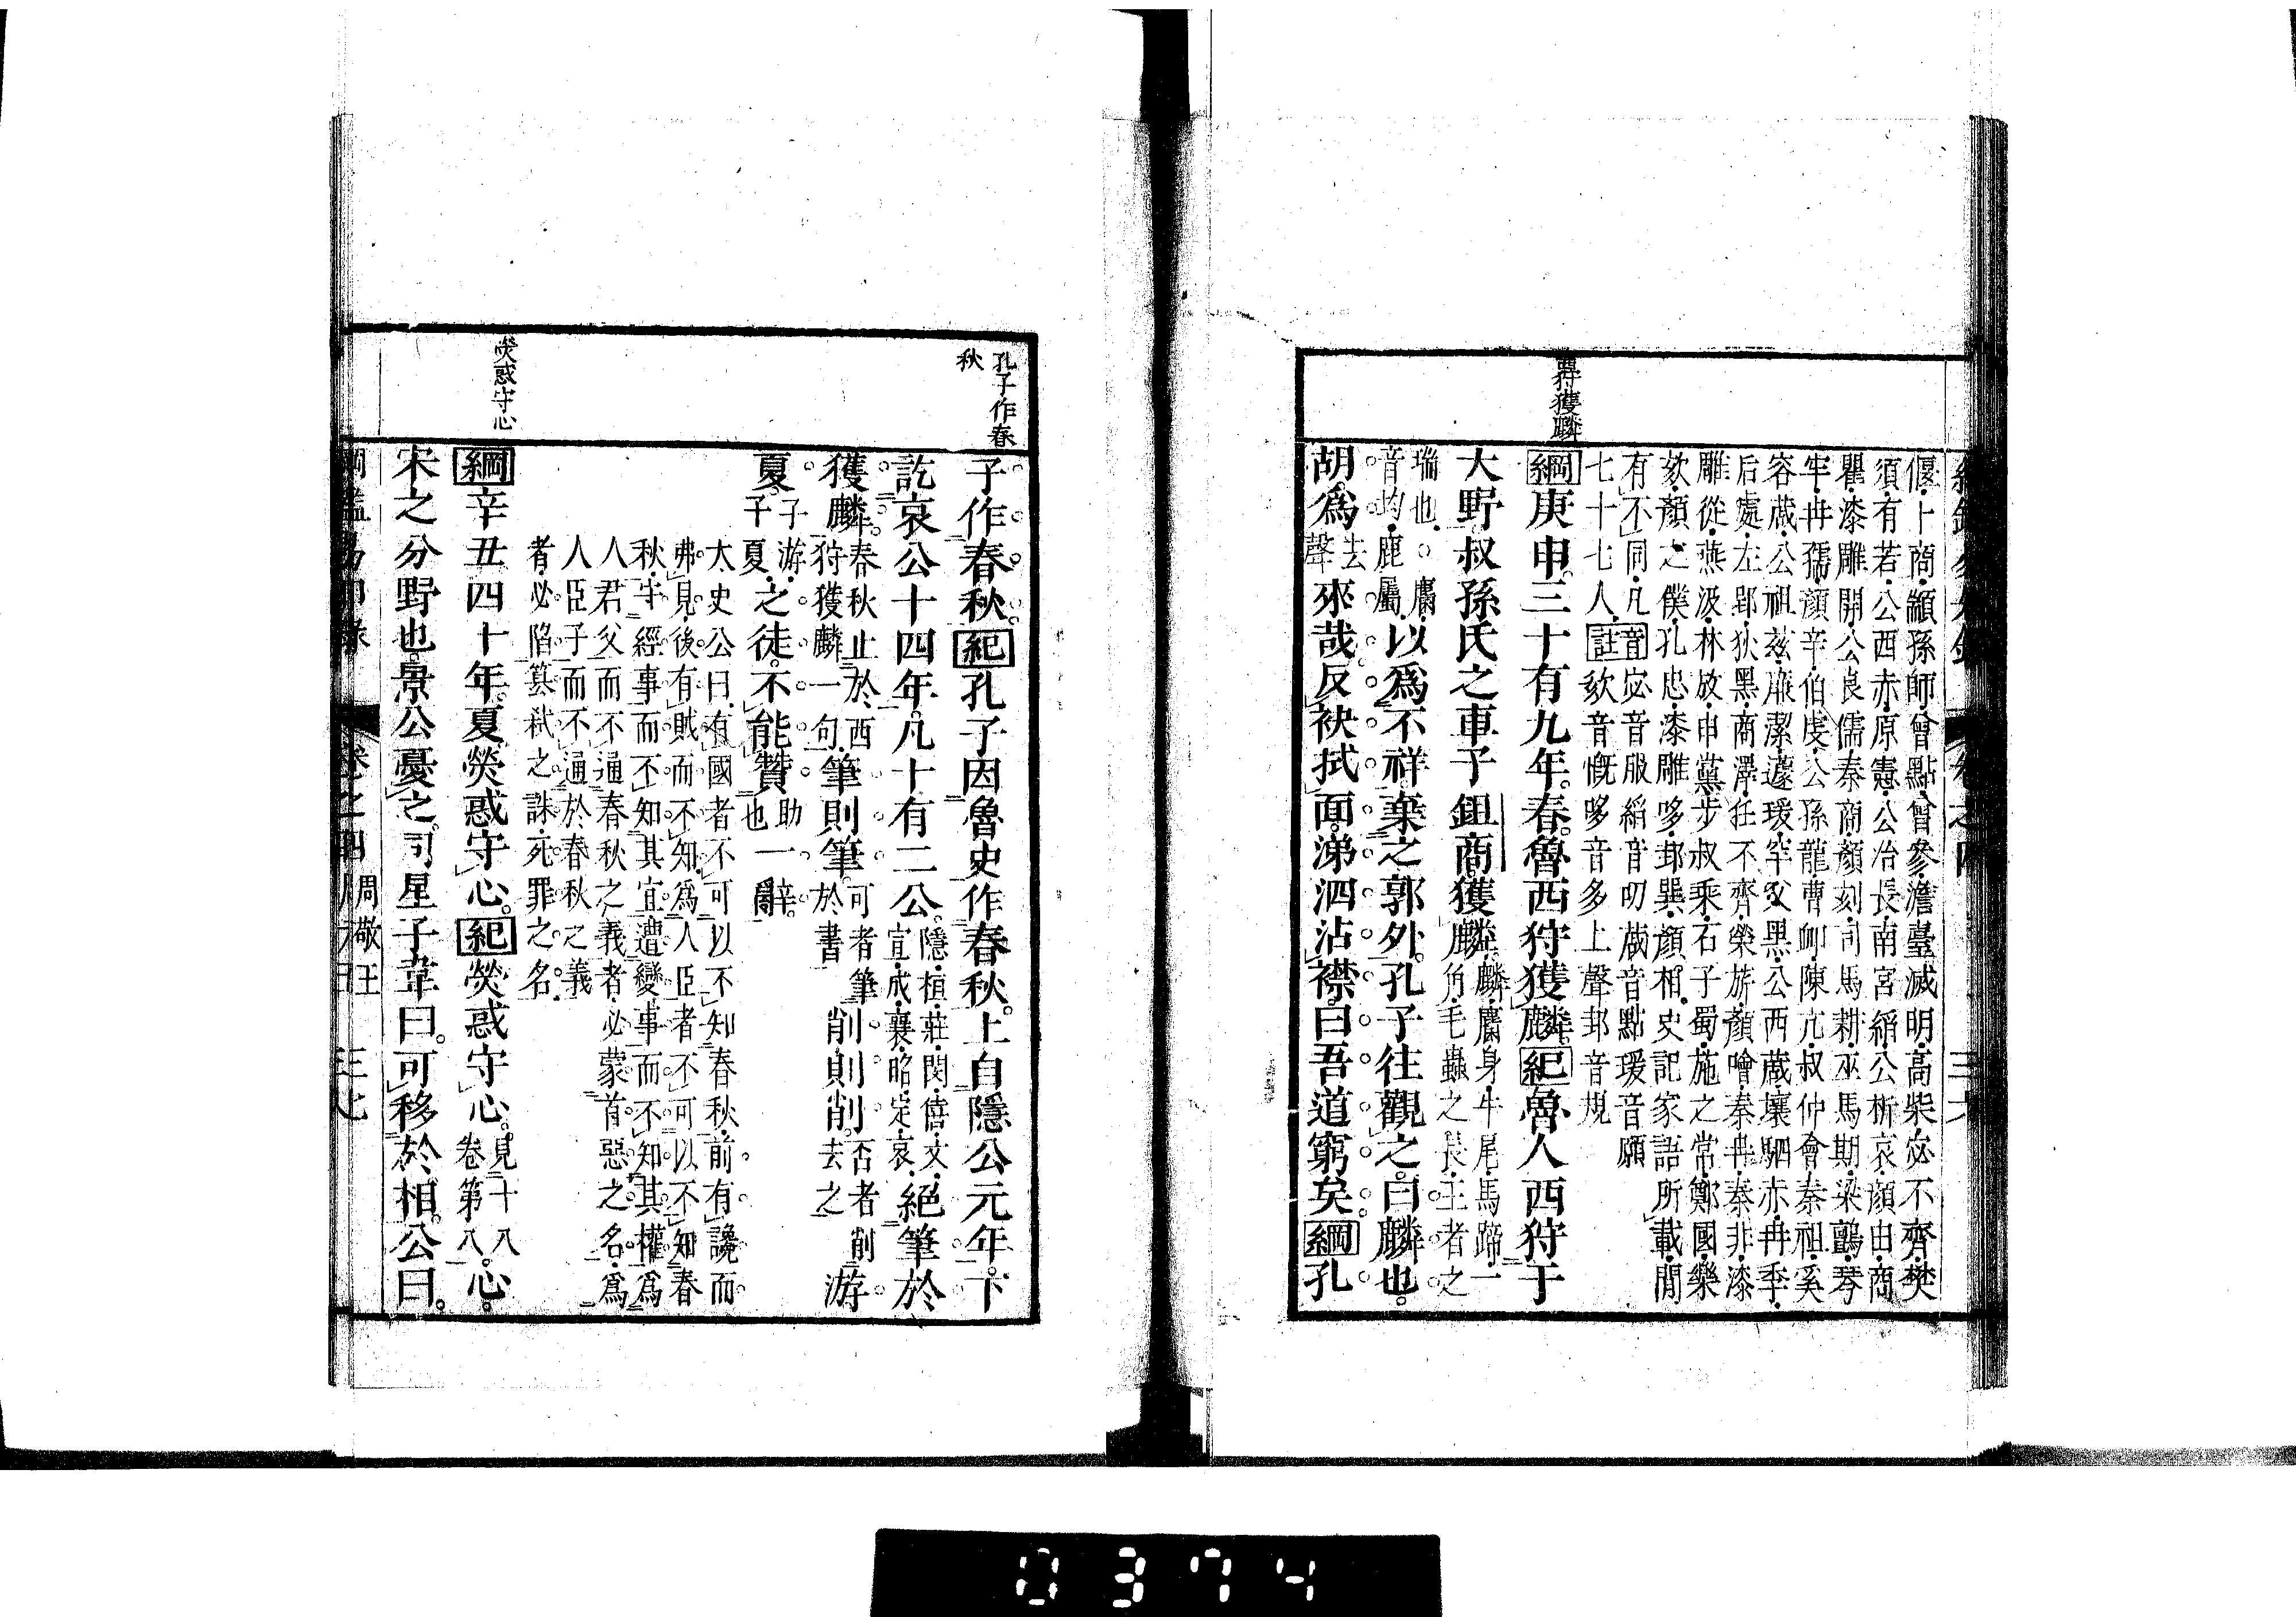 西狩獲麟
偃卜商顓孫師曾點曾參澹臺滅明高柴宓不齊樊
須有若公西赤原憲公冶長南宮縚公析哀顏由商
瞿漆雕開公良儒秦商顏刻司馬耕巫馬期梁鸇琴
牢冉孺顏辛伯虔公孫龍曹卹陳亢叔仲會秦祖奚
容蒧公祖茲廉潔蘧瑗罕父黑公西蒧壤駟赤冉季
后處左郢狄黑商澤任不齊榮旂顏噲秦冉秦非漆
雕從燕汲林放申黨步叔乘石子蜀施之常鄭國樂
欬顏之僕孔忠漆雕哆邽巽顏相史記家語所載間
有不同凡音宓音服縚音叨蒧音點瑗音願
七十七人註欬音慨哆音多上聲邽音規
綱庚申三十有九年春魯西狩獲麟紀魯人西狩于
大野叔孫氏之車子鉏商獲麟麟麕身牛尾馬蹄一
角毛蟲之長王者之
瑞也○麕
音均鹿屬以爲不祥棄之郭外孔子往觀之曰麟也
胡爲去
聲來哉反袂拭面涕泗沾襟曰吾道窮矣綱孔
卷之四
孔子作春
秋
熒惑守心
子作春秋紀孔子因魯史作春秋上自隱公元年下
訖哀公十四年凡十有二公隱桓莊閔僖文
宣成襄昭定哀絕筆於
獲麟春秋止於西
狩獲麟一句筆則筆可者筆
於書削則削否者削
去之游
夏子游
子夏之徒不能贊助
也一辭
太史公曰有國者不可以不知春秋前有讒而
弗見後有賊而不知爲人臣者不可以不知春
秋守經事而不知其宜遭變事而不知其權爲
人君父而不通春秋之義者必蒙首惡之名爲
人臣子而不通於春秋之義
者必陷篡弒之誅死罪之名
綱辛丑四十年夏熒惑守心紀熒惑守心見十八
卷第八心
宋之分野也景公憂之司星子韋曰可移於相公曰
卷之四 周敬王